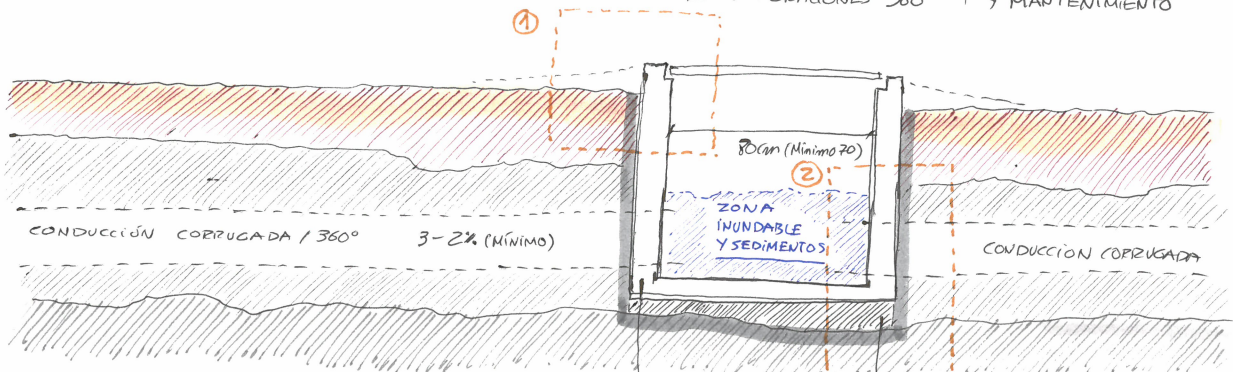 360° Y MANTENIMIENTO
①
80cm (Mínimo 70)
②
ZONA
INUNDABLE
Y SEDIMENTOS
CONDUCCIÓN CORRUGADA / 360° 3-2% (MÍNIMO)
CONDUCCION CORRUGADA